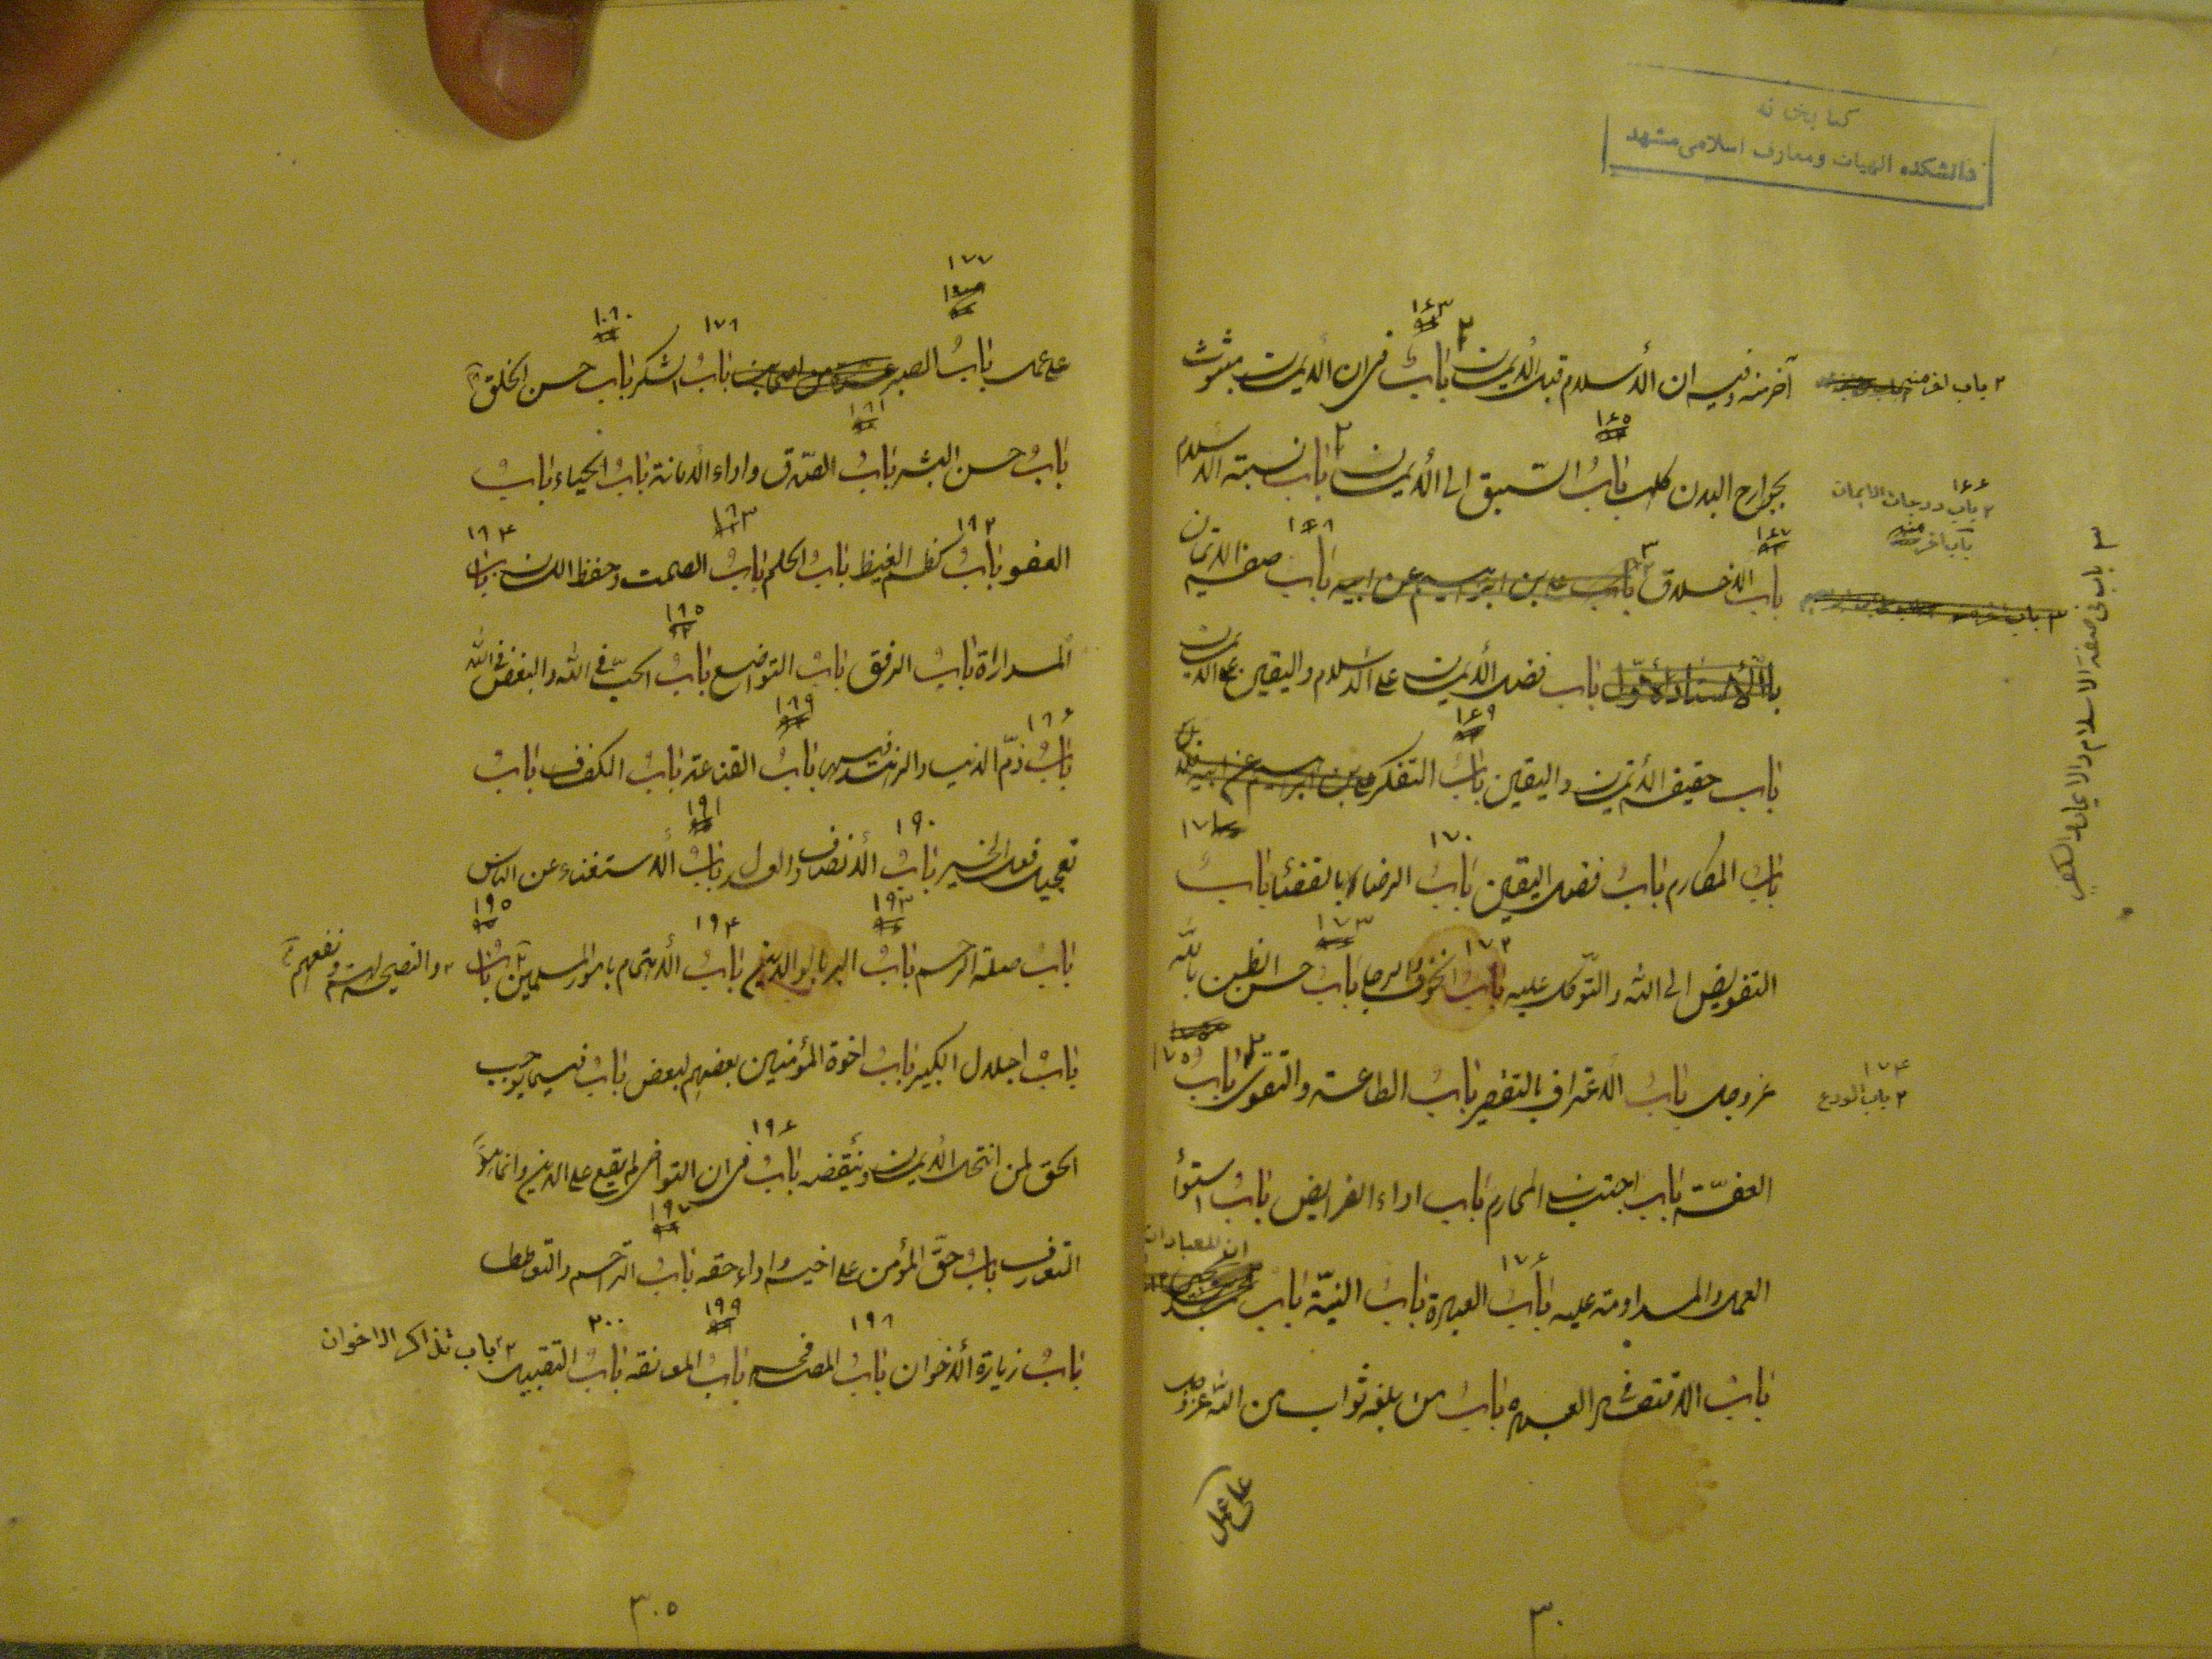 کتابخانه
دانشکده الهیات ومعارف اسلامی مشهد
۱۶۳
آخر منه وفيه ان الأسلام قبل الأيمان باب فى ان الأيمان مبثوث
۲ باب اخر منه
۱۶۵
بجوارح البدن كلها باب السبق الى الأيمان باب نسبة الاسلام
۱۶۶
۲ باب درجات الايمان
باب اخر منه
۱۶۷ ۱۶۸
باب الاخلاق باب على بن ابرهيم عن ابيه باب صفة الايمان
۳ باب فى صفة الاسلام والايمان
باب فضل الأيمان على الاسلام واليقين على الايمان
۱۶۹
باب حقيقة الأيمان واليقين باب التفكر على بن ابرهيم عن ابيه
۱۷۰ ۱۷۱
باب المكارم باب فضل اليقين باب الرضا بالقضا باب
۱۷۲ ۱۷۳
التفويض الى الله والتوكل عليه باب الخوف والرجا باب حسن الظن بالله
۱۷۵
عزوجل باب الاعتراف بالتقصير باب الطاعة والتقوى باب
۱۷۴
۲ باب الورع
العفّة باب اجتناب المحارم باب اداء الفرايض باب استوا
۱۷۶
العمل والمداومة عليه باب العبادة باب النيّة باب
باب الاقتصاد فى العبادة باب من بلغه ثواب من الله عزوجل
على عمل
۳۰
۱۷۷
۱۷۸ ۱۸۰
على عمل باب الصبر باب الشكر باب حسن الخلق
۱۸۱
باب حسن البشر باب الصّدق واداء الأمانة باب الحياء باب
۱۸۲ ۱۸۳ ۱۸۴
العفو باب كظم الغيظ باب الحلم باب الصمت وحفظ اللسان باب
۱۸۵
المداراة باب الرفق باب التواضع باب الحبّ فى الله والبغض فى الله
۱۸۶ ۱۸۹
باب ذمّ الدنيا والزهد فيها باب القناعة باب الكفاف باب
۱۹۰ ۱۹۱
تعجيل فعل الخير باب الأنصاف والعدل باب الأستغناء عن الناس
۱۹۳ ۱۹۴ ۱۹۵
باب صلة الرحم باب البر بالوالدين باب الأهتمام بامور المسلمين باب
۲ والنصيحة لهم ونفعهم
باب اجلال الكبير باب اخوة المؤمنين بعضهم لبعض باب فيما يوجب
۱۹۶
الحق لمن انتحل الأيمان وينقضه باب فى ان التواخى لم يقع على الدين وانما هو
۱۹۷
التعارف باب حقّ المؤمن على اخيه واداء حقه باب التراحم والتعاطف
۱۹۸ ۱۹۹ ۲۰۰
باب زيارة الأخوان باب المصافحه باب المعانقه باب التقبيل
۲ باب تذاكر الاخوان
۳۰۵